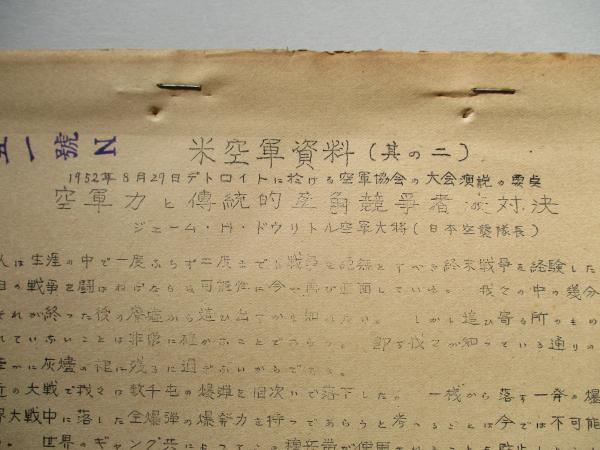 一號 N
米空軍資料（其の二）
1952年8月29日デトロイトに於ける空軍協会の大会演説の要点
空軍力と傳統的 競爭者 対決
ジェーム・H・ドウリトル空軍大将（日本空襲隊長）
人は生涯の中で一度ならず二度までも戦争を 終末戦争を経験した
日の戦争を闘はねばならぬ可能性に今や再び直面している。 我々の中の幾分
それが終った後の廃墟から這ひ出て 知れない。 しかし這ひ寄る所のもの
れていないことは非常に確かことであらう。 即ち我々が知っている通りの
かに灰燼の裡に残るに過ぎないからである。
近の大戦で我々は数千屯の爆弾を相次いで落下した。 一機から落す一発の爆
界大戦中に落した全爆弾の爆発力を持つであらうと考へることは今では不可能
世界のギャング共によって が使用されることを防止